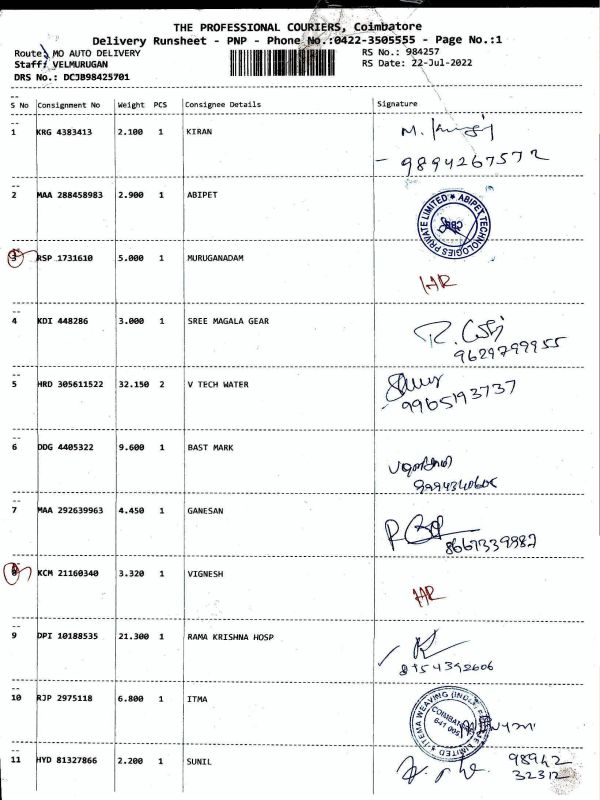 THE PROFESSIONAL COURIERS, Coimbatore
Delivery Runsheet - PNP - Phone No.:0422-3505555 - Page No.:1
Route: MO AUTO DELIVERY
RS No.: 984257
Staff: VELMURUGAN
RS Date: 22-Jul-2022
DRS No.: DCJB98425701
S No Consignment No Weight PCS Consignee Details Signature
1 KRG 4383413 2.100 1 KIRAN
9894267572
2 MAA 288458983 2.900 1 ABIPET
ABIPET TECHNOLOGIES PRIVATE LIMITED
CBE
3 RSP 1731610 5.000 1 MURUGANADAM
HR
4 KDI 448286 3.000 1 SREE MAGALA GEAR
9629799955
5 HRD 305611522 32.150 2 V TECH WATER
9965193737
6 DDG 4405322 9.600 1 BAST MARK
7 MAA 292639963 4.450 1 GANESAN
8667339987
8 KCM 21160340 3.320 1 VIGNESH
HR
9 DPI 10188535 21.300 1 RAMA KRISHNA HOSP
10 RJP 2975118 6.800 1 ITMA
11 HYD 81327866 2.200 1 SUNIL
98942
32312